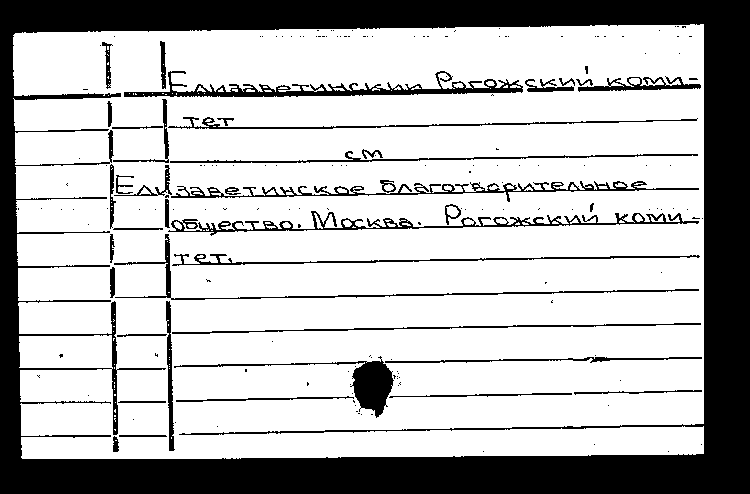 Елизаветинский Рогожский коми-
тет
см
Елизаветинское благотворительное
общество. Москва. Рогожский коми-
тет.